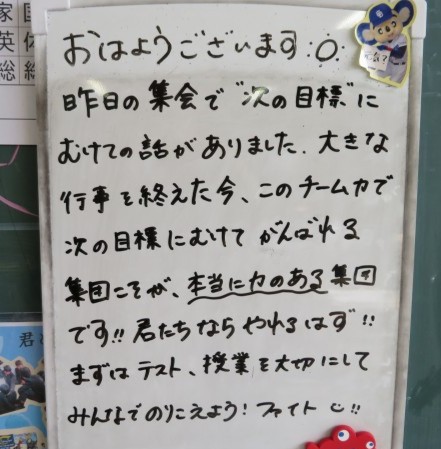 家 国
英 体
総 総
おはようございます:○:
昨日の集会で"次の目標"に
むけての話がありました. 大きな
行事を終えた今、このチーム力で
次の目標にむけて がんばれる
集団こそが、本当に力のある集団
です!! 君たちなら やれるはず!!
まずは テスト、授業を大切にして
みんなでのりこえよう! ファイト !!
君